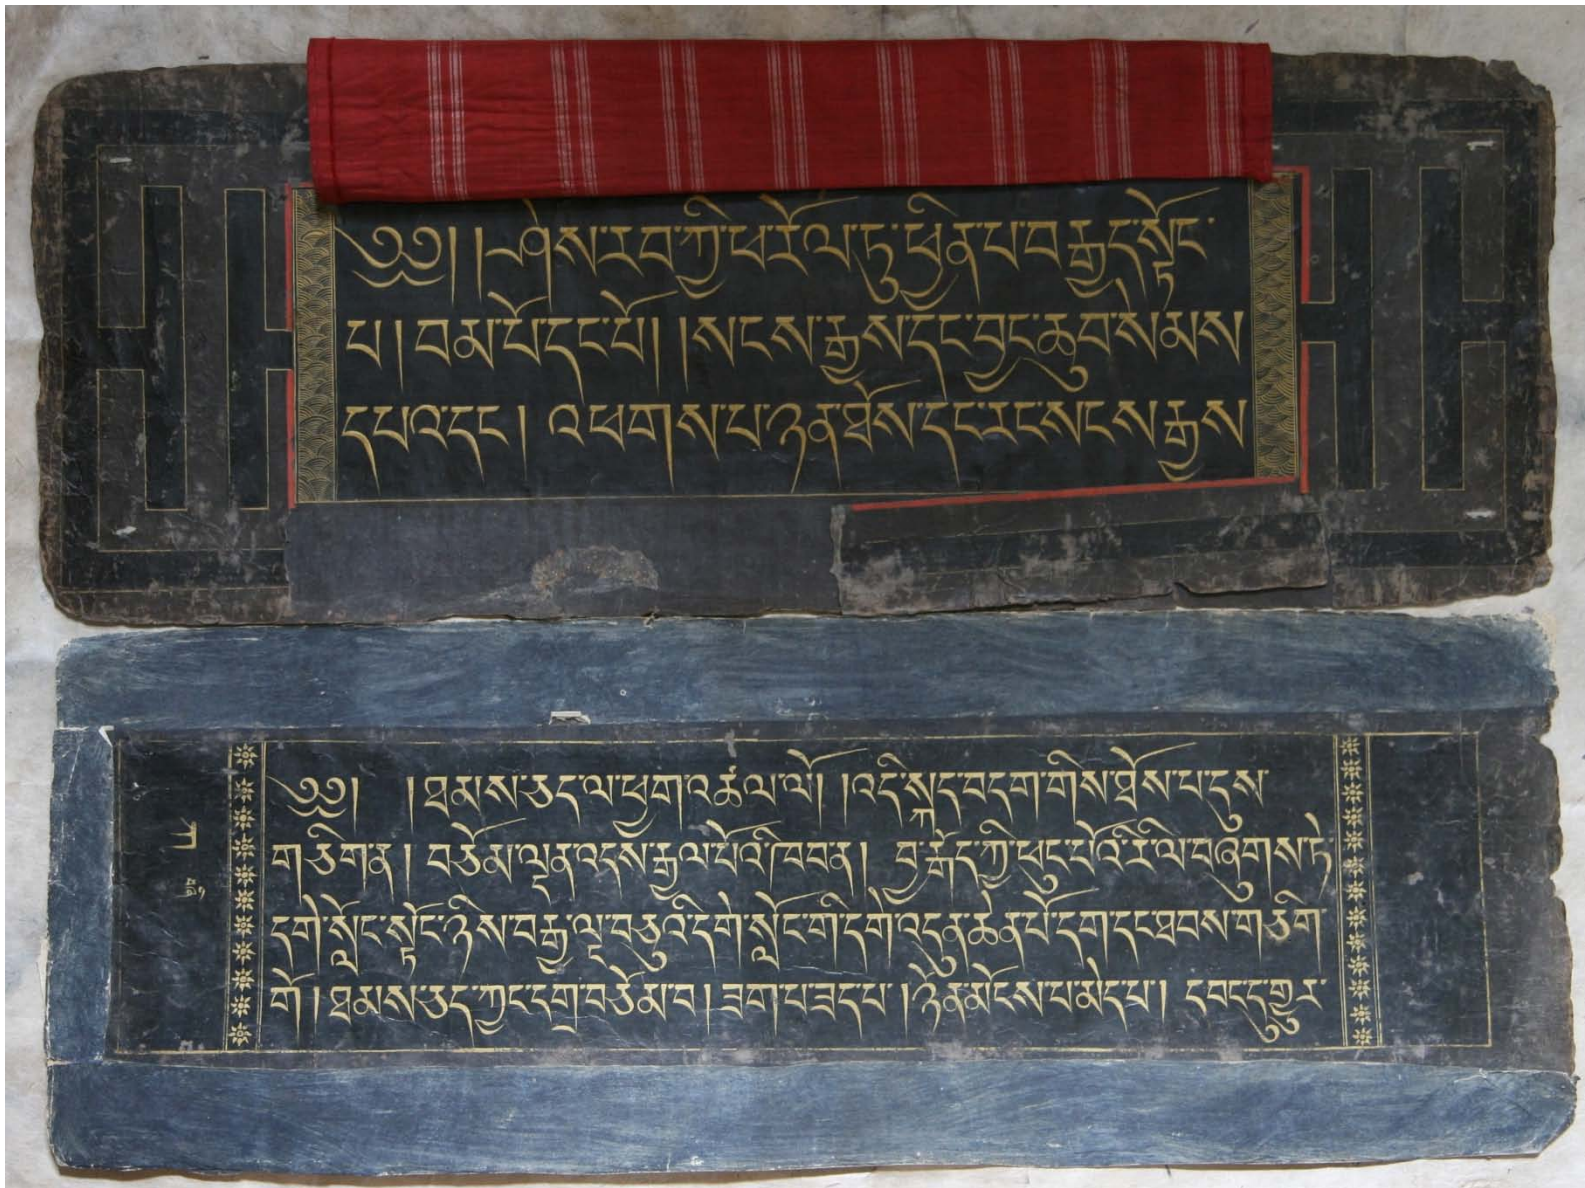 ༄༅། །ཤེས་རབ་ཀྱི་ཕ་རོལ་ཏུ་ཕྱིན་པ་བརྒྱད་སྟོང་
པ། བམ་པོ་དང་པོ། །སངས་རྒྱས་དང་བྱང་ཆུབ་སེམས
དཔའ་དང་། འཕགས་པ་ཉན་ཐོས་དང་རང་སངས་རྒྱས
༄༅། །ཐམས་ཅད་ལ་ཕྱག་འཚལ་ལོ། །འདི་སྐད་བདག་གིས་ཐོས་པ་དུས་
གཅིག་ན། བཅོམ་ལྡན་འདས་རྒྱལ་པོའི་ཁབ་ན། བྱ་རྒོད་ཀྱི་ཕུང་པོའི་རི་ལ་བཞུགས་ཏེ་
དགེ་སློང་སྟོང་ཉིས་བརྒྱ་ལྔ་བཅུའི་དགེ་སློང་གི་དགེ་འདུན་ཆེན་པོ་དག་དང་ཐབས་གཅིག་
གོ། ཐམས་ཅད་ཀྱང་དགྲ་བཅོམ་བ། ཟག་པ་ཟད་པ། །ཉོན་མོངས་པ་མེད་པ། དབང་དུ་གྱུར་
ཀ